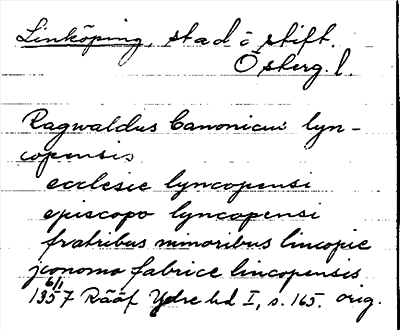 Linköping, stad o stift.
Österg. l.
Ragwaldus Canonicus lyn-
copensis
ecclesie lyncopensi
episcopo lyncopensi
fratribus minoribus lincopie
yconomo fabrice lincopensis
6/1
1357 Rääf Ydre hd I, s. 165. orig.